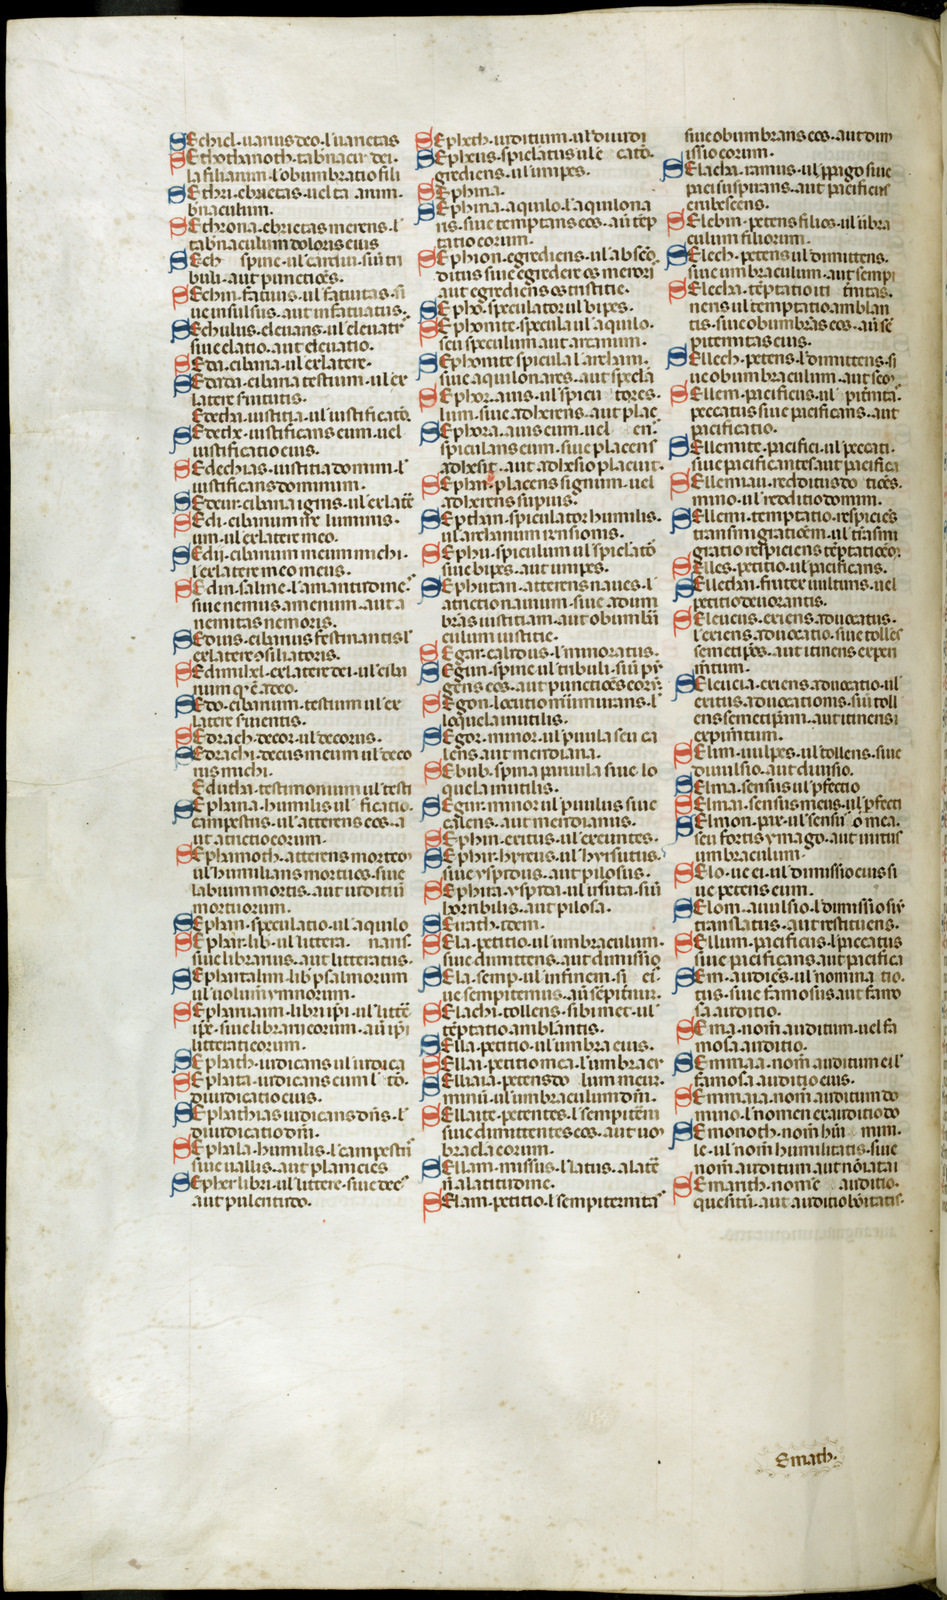 SEchiel. uanus deo. l' uanetas
SEthothanoth. tabnacꝉ dei.
la filianum. l' obumbratio fili
SEthri. ebrietas. uel ta
bnaculum.
SEthrona. ebrietas merens. l'
tabnaculum doloris eius
SEch spine. ul' cardin. siu tri
buli. aut punctiões.
SEchin. fatuus. ul' fatuitas. si
ue insulsus. aut infatuatus.
SEchulus. eleuans. ul' eleuatꝰ
siue elatio. aut eleuatio.
SEda. cibana. ul' ex latere.
SEdada. cibana testium. ul' ex
latere siuitutis.
Sedecha. iustitia. ul' iustificatō.
SEdeche. iustificans eum. uel
iustificatio eius.
SEdechias. iustitia domini. l'
iustificans dominum.
SEdeur. cibana ignis. ul' ex latē
SEdi. cibanum luminis.
um. ul' ex latere meo.
SEdij. cibanum meum michi.
l' ex latere meo meus.
SEdin. saline. l' amantitudines
siue nemus amenum. aut a
nemitas nemoris.
SEdius. cibanus festinantis l'
ex latere ꝯsiliatoris.
SEdimihel. ex latere dei. ul' ciba
num q' ē a deo.
SEdo. cibanum. testium ul' ex
latere siuentis.
SEdrach. decor. ul' decorus.
SEdrachi. decus meum ul' deco
rus michi.
Seduтha. testimonium ul' testi
SEphama. humilis ul' ficatio.
campestris. ul' atterens eos. a
ut atrictio eorum.
SEphamoth. atterens morteo
ul' humilians mortuos. siue
labium mortis. aut uiditiū
mortuorum.
SEphan. speculatio. ul' aquilo
SEphar. lib. ul' littera. nans.
siue librarius. aut litteratus.
SEphartalim. lib psalmorum
ul' uolum ymnorum.
SEpharuaim. libri ip̄i. ul' littē
ip̄e. siue librariorum. aū ip̄i
litteratiorum.
SEphath. iudicans ul' iudica
SEphata. iudicans eum l' tō.
diiudicatio eius.
SEphathias iudicans dn̄s. l'
diiudicatio dn̄i.
SEphala. humilis. l' campestri
siue uallis. aut planicies
SEpher libri. ul' littere. siue dec
aut pulcritudo.
SEpheth. iuditium. ul' diiudi
SEpheus. spiclatus ul' e catō.
grediens. ul' impes.
SEphina.
SEphina. aquilo. l' aquilona
ris. siue temptans eos. aū tēp
tatio eorum.
SEphion. egrediens. ul' abscō.
ditus siue egredere os meroris
aut egrediens os tristitie.
SEpho. speculator ul' bipes.
SEphonite. specula ul' aquilo.
seu speculum aut arcanum.
SEphonite spicula l' archam.
siue aquilonares. aut specla
SEphor. auis. ul' spicu tores.
lum. siue adherens. aut plac
SEphora. auis eum. uel en
spiculans eum. siue placens
adhesit. aut adhesio placuit.
SEphar. placens signum. uel
adherens supius.
SEpthan. spiculator humilis.
ul' archanum irrisionis.
SEphu. spiculum ul' spiclatō
siue bipes. aut unipes.
SEphutan. atterens naues. l'
atrictio nauium. siue adum
brās iustitiam. aut obumbra
culum iustitie.
SEgar. calidus. l' minoratus.
SEgim. spine ul' tribuli. siū pū
gens eos. aut punctiōes eorū.
SEgon. locutio inimitans. l'
loquela inutilis.
SEgor. minor. ul' puula seu ca
lens. aut meridiana.
SEbub. spina paruula siue lo
quela inutilis.
SEgur. minor ul' puulus siue
calens. aut meridianus.
SEphin. exitus. ul' exeuntes.
SEphir. hyrcus. ul' hyrsutus.
siue ysprdus. aut pilosus.
SEphira. yspida. ul' irsuta. siū
horribilis. aut pilosa.
SEirath. idem.
SEla. petitio. ul' umbraculum.
siue dimittens. aut dimissio
SEla. semp. ul' in finem. si ei
ue sempiternus. aū sēpitnur.
SElachi. tollens. sibimet. ul'
tēptatio amblantis.
SElla. petitio. ul' umbra eius.
SEllai. petitio mea. l' umbra er
SElliaia. petens do lum meū.
minū. ul' umbraculum dn̄i.
SEllaite. petentes. l' sempitēni
siue dimittentes eos. aut uo
bracla eorum.
SEllam. missus. l' latus. a latē
ul' a latitudine.
SElam. petitio. l' sempiternitas
siue obumbrans eos. aut dim
issio eorum.
SElacha. ramus. ul' ppago siue
paci suspirans. aut pacificus
erubescens.
SElebin. petens filios. ul' ūbra
culum filiorum.
SElech. petens. ul' dimittens.
siue umbraculum. aut sempi
SElecha. tēptatio iti tnitas.
nens ul' temptatio amblan
tis. siue obumbrās eos. aū sē
pitennitas eius.
SEllech. petens. l' dimittens. si
ue obumbraculum. aut seo
SEllem. pacificus. ul' pitnita.
peccatus siue pacificans. aut
pacificatio.
SEllemite. pacifici. ul' peccati.
siue pacificantes aut pacifica
SElleman. redditus do tiōes.
mino. ul' redditio domini.
SEllemi. temptatio. respiciēs
transmigratiōem. ul' trāsmi
gratio respiciens tēptatiōeꝫ.
SElles. petitio. ul' pacificans.
SEllechai. frutex uultuus. uel
petitio deuorantis.
SEleucus. exiens. aduocatus.
l' exiens. aduocatio. siue tollēs
semetip̄os. aut itinens experi
mtum.
SEleucia. exiens. aduocatio. ul'
exitus. aduocationis. siū toll
ens semetip̄am. aut itinens i
experimtum.
SElim. uulpes. ul' tollens. siue
diuulsio. aut diuisio.
SElma. sensus. ul' pfectio
SElmai. sensus meus. ul' pfecti
SElmon. pax. ul' sensus o mea.
seu fortis ymago. aut uirtus
umbraculum.
SElo. ue ei. ul' dimissio eius si
ue petens eum.
SElom. auulsio. l' dimissio siū
translatus. aut restituens.
SEllum. pacificus. l' peccatus
siue pacificans. aut pacifica
SEm. audiēs. ul' nomina tio.
tus. siue famosus aut famo
sa auditio.
SEma. nom̄ auditum. uel fa
mosa. auditio.
SEmmaa. nom̄. auditum ei l'
famosa auditio eius.
SEmmaia. nom̄. auditum do
mino. l' nomen exauditio do
SEmonoth. nom̄ hūi mini.
le. ul' nom̄ humilitatis. siue
nom̄. auditum. aut nōiatai
SEmanth. nomē auditio.
quesitū. aut auditio bōitatis.
Smath.